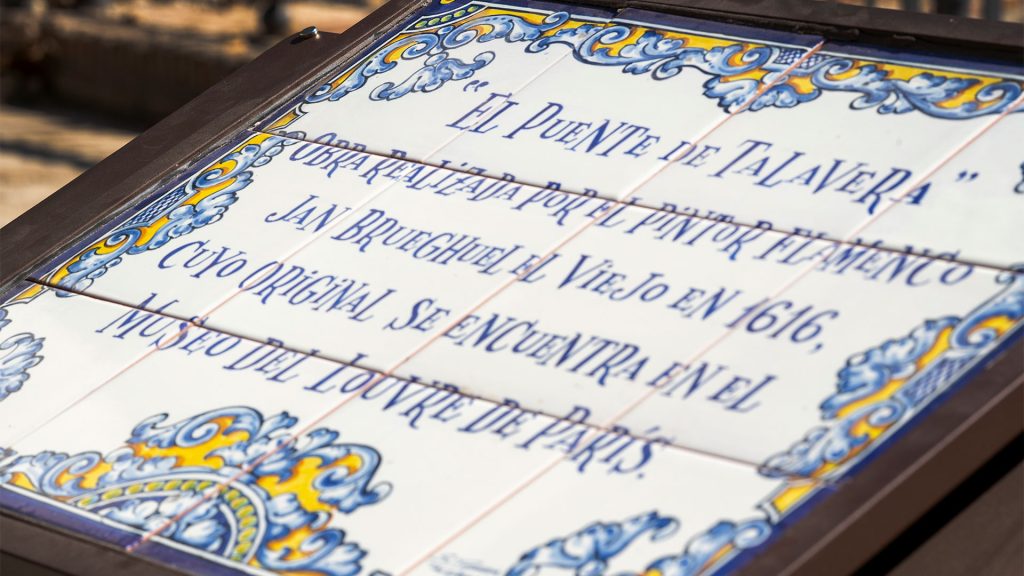 "EL PUENTE DE TALAVERA"
OBRA REALIZADA POR EL PINTOR FLAMENCO
JAN BRUEGHUEL EL VIEJO EN 1616,
CUYO ORIGINAL SE ENCUENTRA EN EL
MUSEO DEL LOUVRE DE PARÍS.